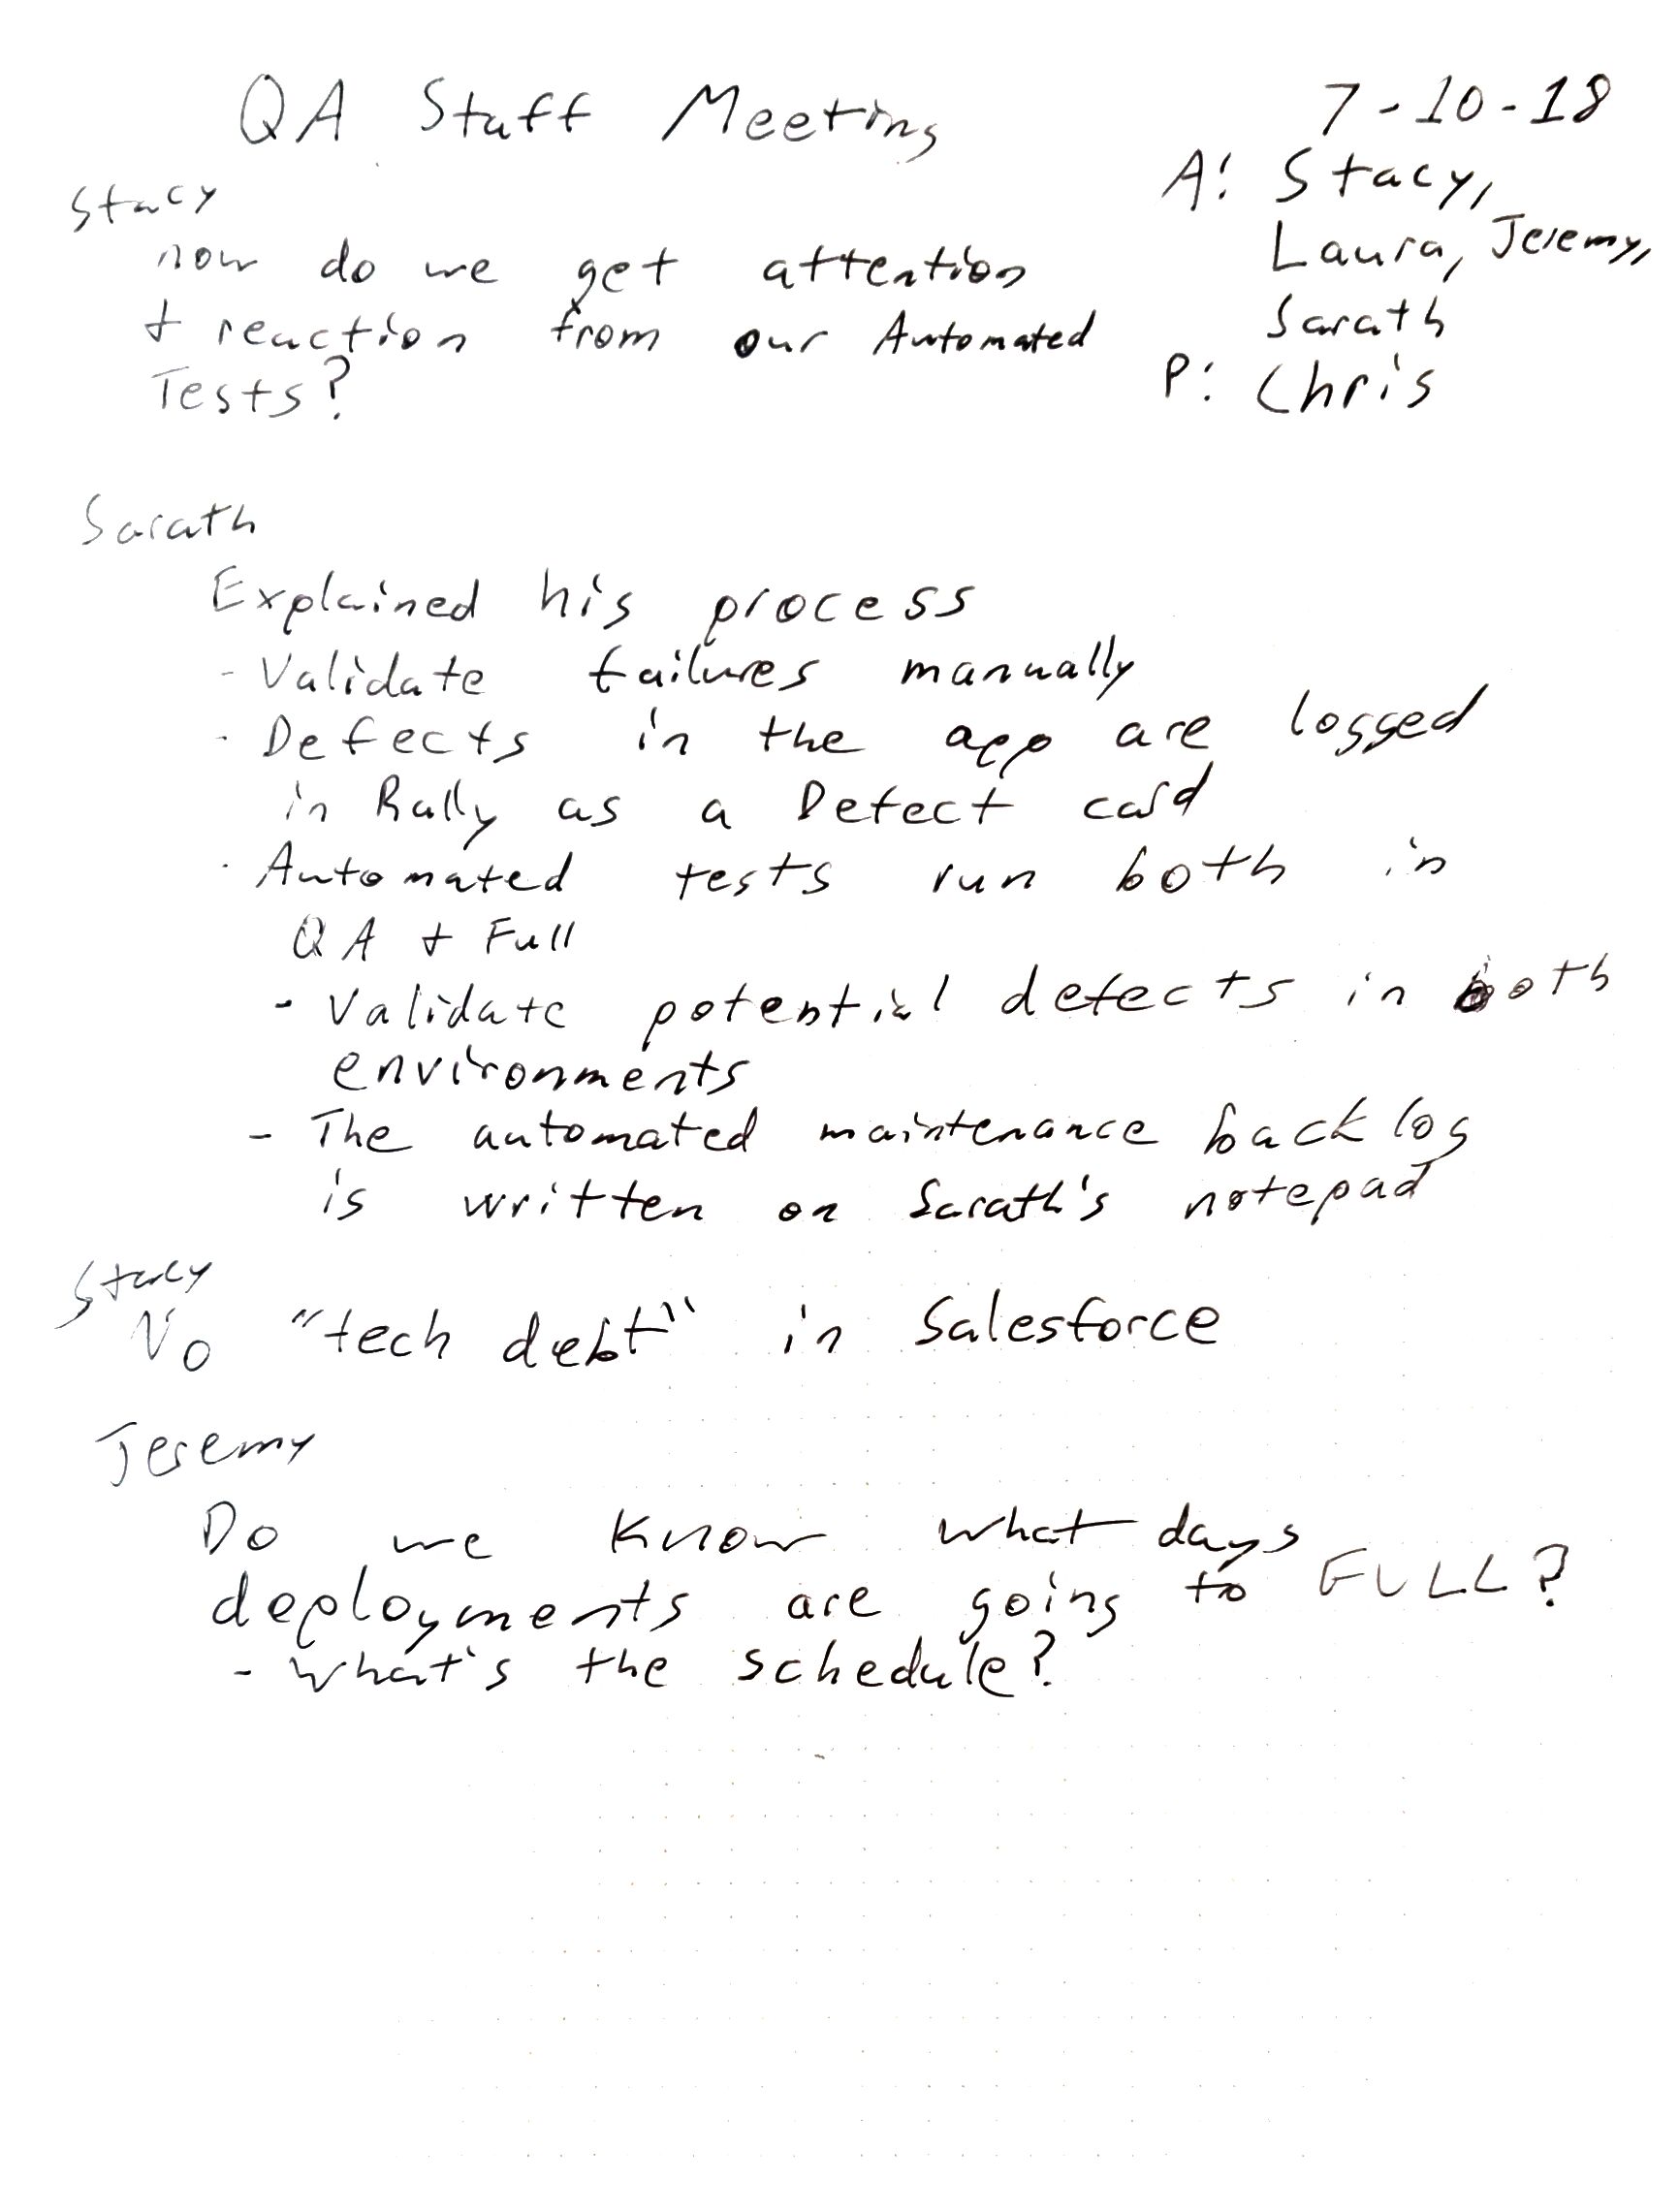 QA Staff Meeting
7-10-18
A: Stacy,
Laura, Jeremy,
Sarath
P: Chris
Stacy
how do we get attention
+ reaction from our Automated
Tests?
Sarath
Explained his process
- Validate failures manually
- Defects in the app are logged
in Rally as a Defect card
- Automated tests run both in
QA + Full
- Validate potential defects in both
environments
- The automated maintenance backlog
is written on Sarath's notepad
Stacy
No "tech debt" in Salesforce
Jeremy
Do we know what days
deployments are going to FULL?
- what's the schedule?